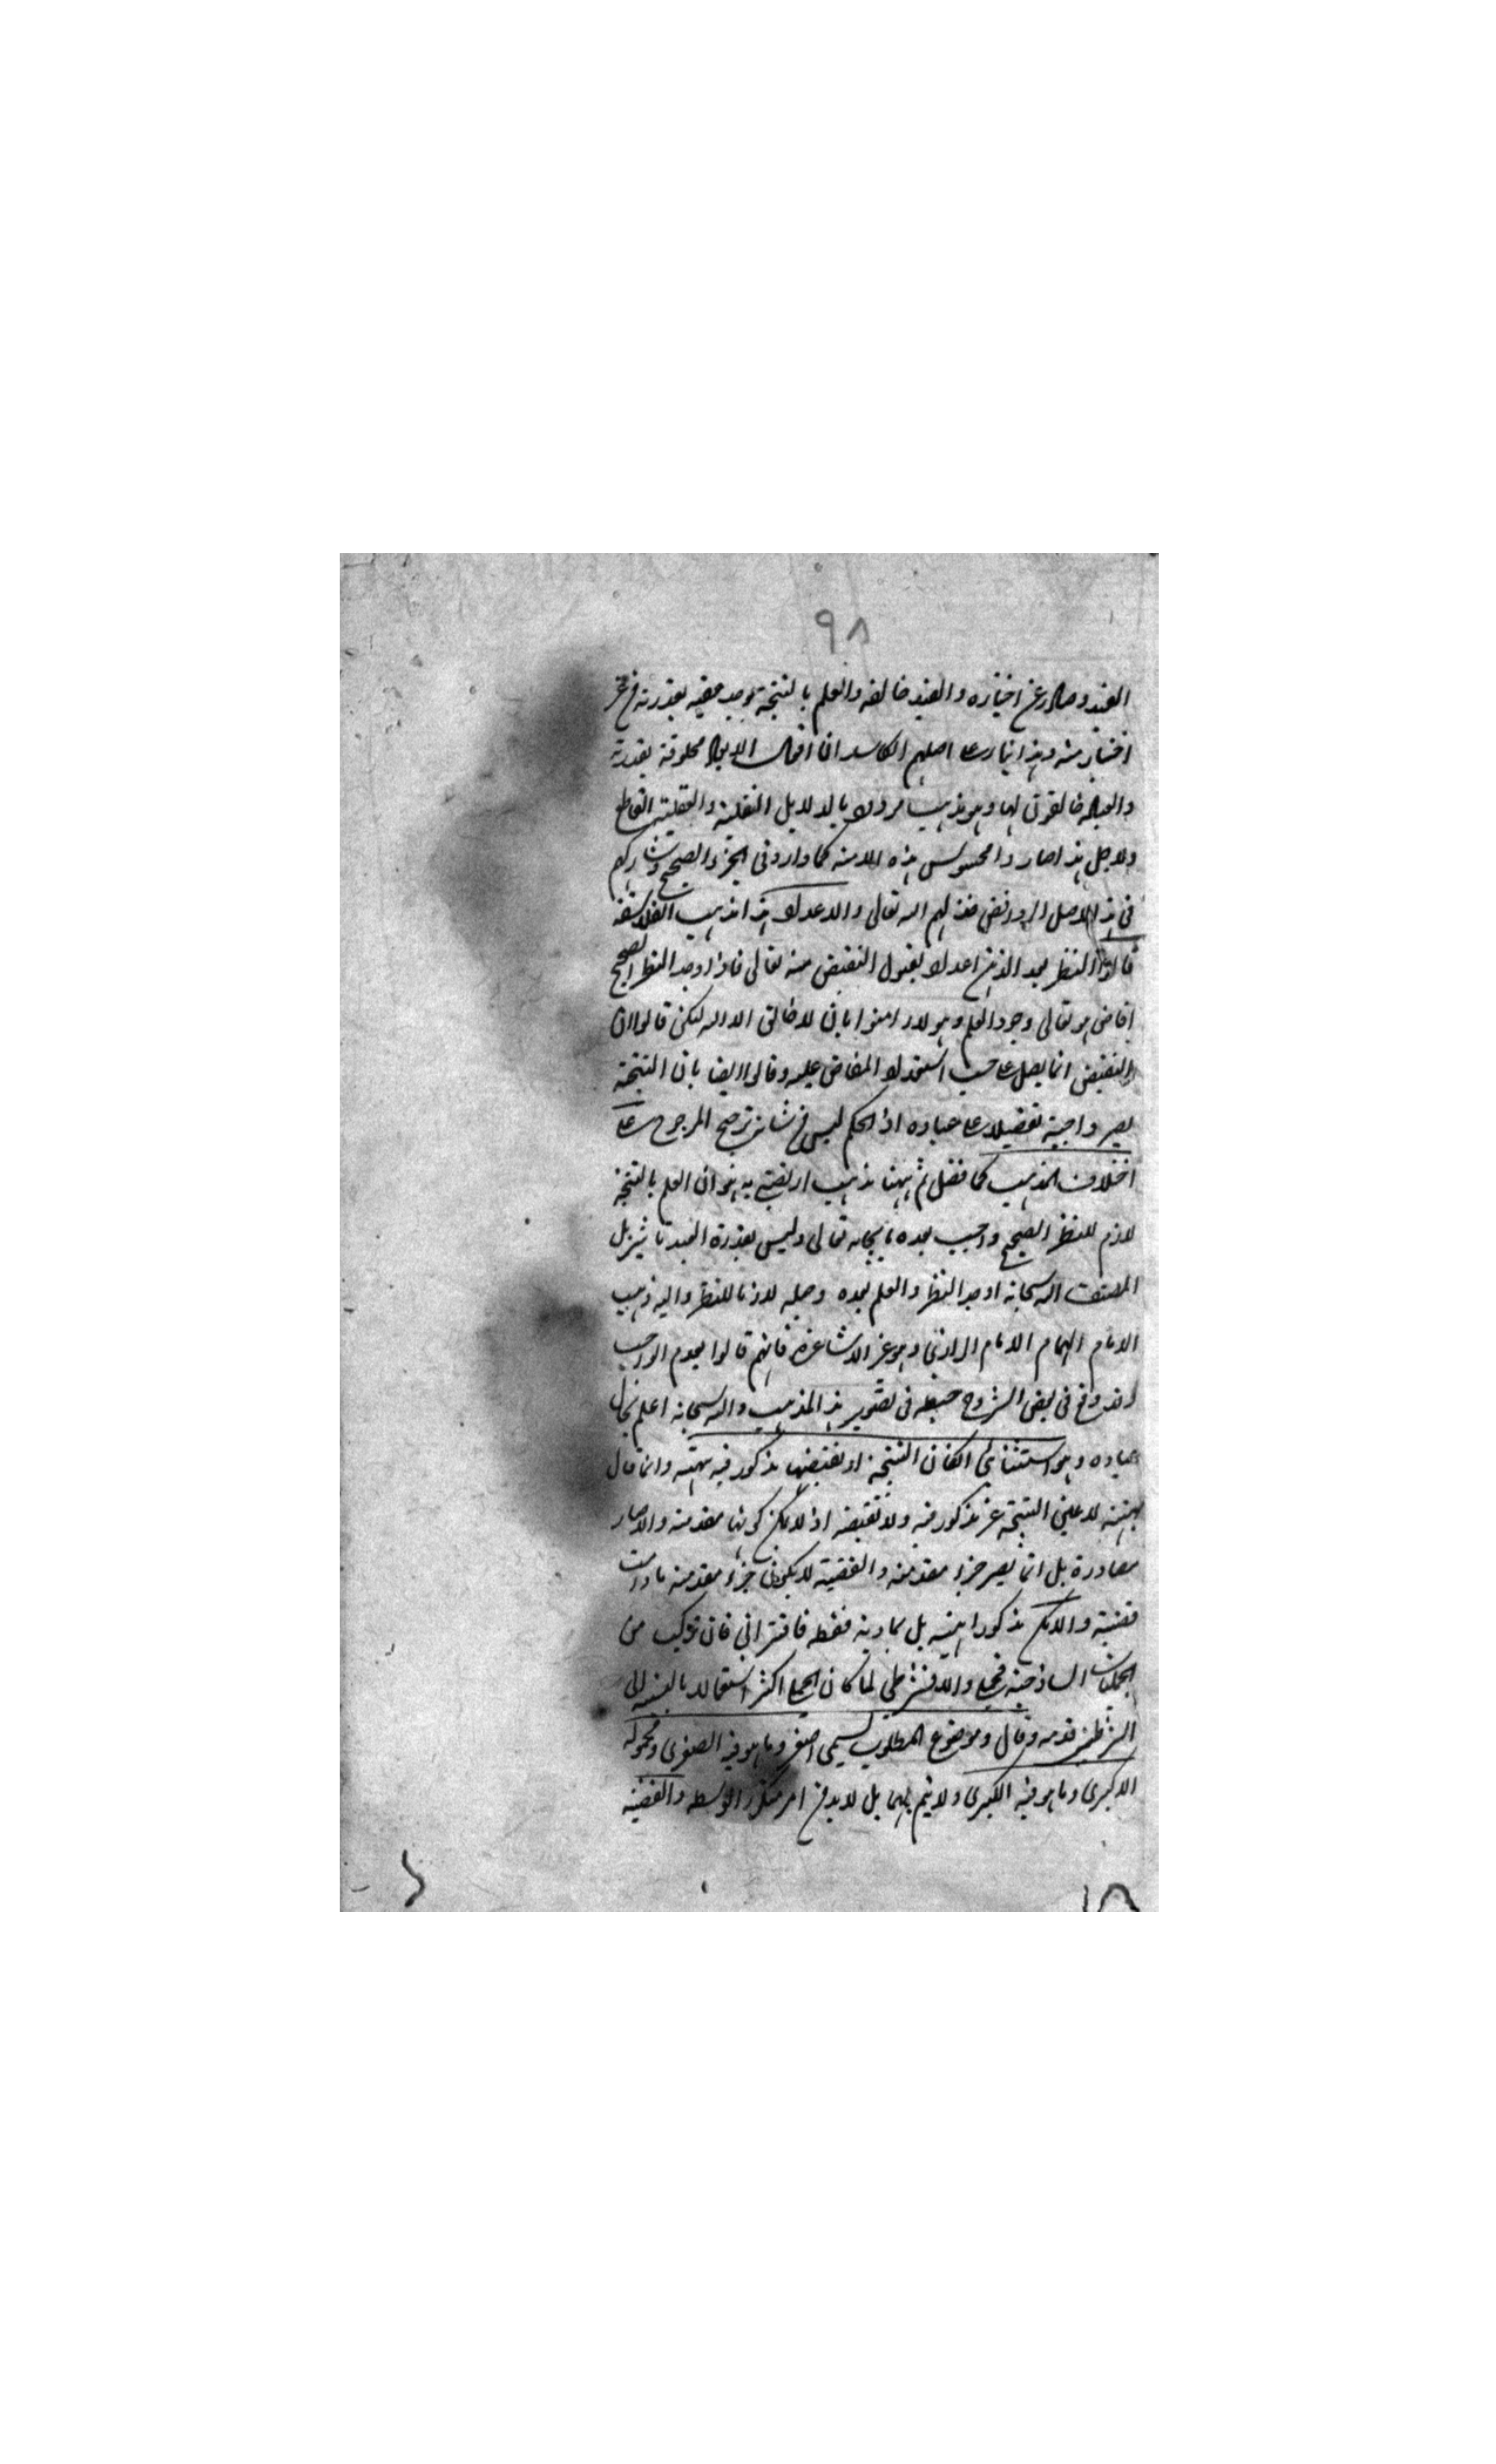 ٩٨
العبد وصادر عن اختياره والعبد خالقه والعلم بالنتيجة يوجد عقيبه بقدرته من غير
اختيار منه وهذا بناء على اصلهم الكاسد ان افعال العباد مخلوقة بقدرة
والعباد خالقون لها وهو مذهب مردود بالدلايل النقلية والعقلية القاطع
ولاجل هذا صاروا مجوس هذه الامة كما وارد في الخبر الصحيح وشاركهم
في هذا الاصل الروافض خذلهم الله تعالى والاعداد هذا مذهب الفلاسفة
قالوا النظر يعد الذهن اعدادا لقبول الفيض منه تعالى فاذا وجد النظر الصحيح
افاض هو تعالى وجود العلم وهولاء امنوا بان لا خالق الا الله لكن قالوا ان
الفيض انما يصل على حسب استعداد المفاض عليه وقالوا ايضا بان النتيجة
يصير واجبة تفضيلا على عباده اذ الحكيم ليس من شانه ترجيح المرجوح على
اختلاف المذهب كما فصل ثم ههنا مذهب ارتضى به هو ان العلم بالنتيجة
لازم للنظر الصحيح واجب بعده بايجابه تعالى وليس بقدرة العبد تاثير بل
الله سبحانه اوجد النظر والعلم بعده وجعله لازما للنظر واليه ذهب
الامام الهمام الامام الرازي وهو غير الاشاعرة فانهم قالوا بعدم الوجوب
وقد وقع في بعض الشروح خبط في تصوير هذا المذهب والله سبحانه اعلم بحال
عباده وهو استثنائي ان كان النتيجة او نقيضها مذكور فيه بهيئته وانما قال
بهيئته لان عين النتيجة غير مذكور فيه ولا نقيضه اذ لا يمكن كونها مقدمة والا صار
مصادرة بل انما يصير جزء مقدمة والقضية لا يكون جزء مقدمة مادامت
قضية وان لم يكن مذكورا بهيئته بل بمادته فقط فاقتراني فان تركب من
الحمليات الساذجة فحملي والا فشرطي لما كان الحملي اكثر استعمالا بالنسبة الى
الشرطي قدمه وقال وموضوع المطلوب يسمى اصغر وما هو فيه الصغرى ومحموله
الاكبر وما هو فيه الكبرى ولا يتم بهما بل لا بد من امر متكرر الوسط والقضية